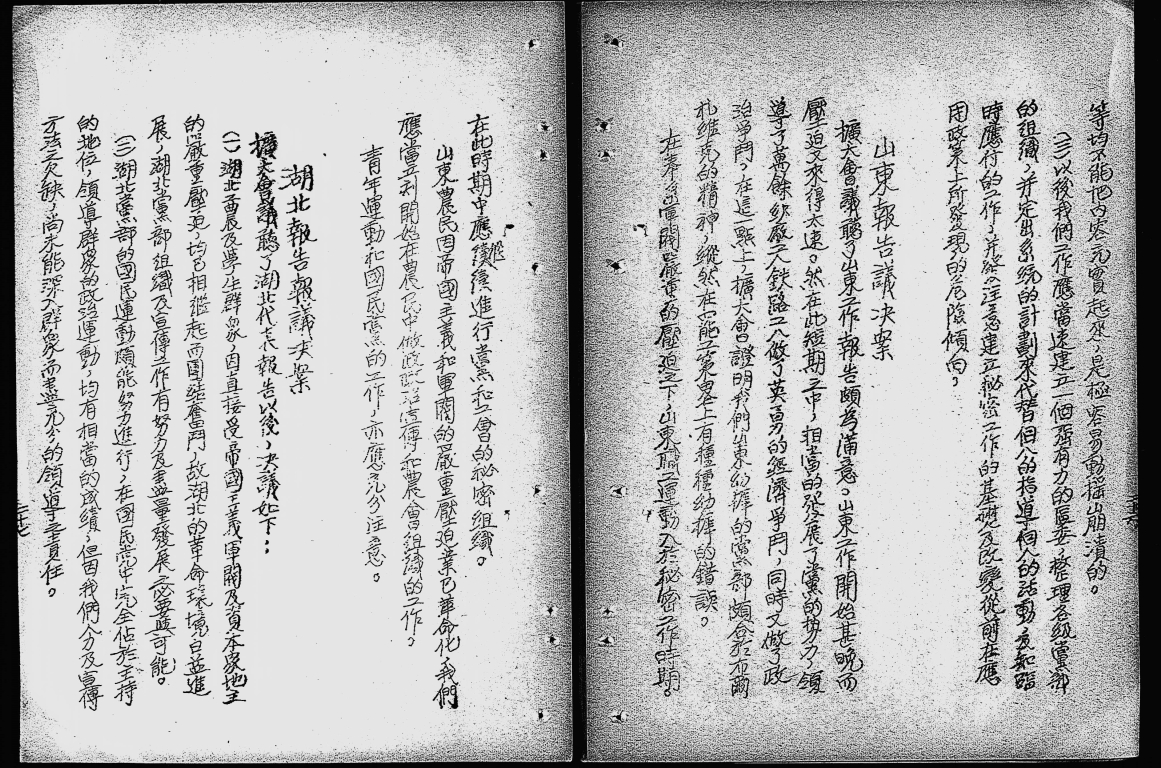 等均不能把內容充實起來，是極容易動搖崩潰的。
（三）以後我們工作應當速建立一個强有力的區委，整理各級黨部
的組織，并定出系統的計劃來代替個人的指導個人的活動，應知臨
時應付的工作，并然注意建立秘密工作的基礎及改變從前在應
用政策上所發現的危險傾向，
山東報告議決案
擴大會議聽了山東工作報告頗為滿意。山東工作開始甚晚而
壓迫又來得太速。然在此短期之中，相當的發展了黨的勢力，領
導了萬餘紗廠工人鉄路工人做了英勇的經濟爭鬥，同時又做了政
治爭鬥，在這一點上，擴大會證明我們山東幼稚的黨部頗合於布爾
札維克的精神，縱然在實際上有種種幼稚的錯誤。
在奉系軍閥嚴重的壓迫之下，山東職工運動入於秘密工作時期。
三六
在此時期中應繼續進行黨和工會的秘密組織。
山東農民因帝國主義和軍閥的嚴重壓迫業已革命化，我們
應當立刻開始在農民中做政治宣傳和農會組織的工作，
青年運動和國民黨的工作，亦應充分注意。
湖北報告議決案
擴大會議聽了湖北代表報告以後，決議如下：
（一）湖北番農及學生群衆，因直接受帝國主義軍閥及資本家地主
的嚴重壓迫，均已相繼起而團結奮鬥，故湖北的革命環境日益進
展，湖北黨部組織及宣傳工作有努力及盡量發展之必要與可能。
（二）湖北黨部的國民運動頗能努力進行，在國民黨中完全佔於主持
的地位，領導群衆的政治運動，均有相當的成績，但因我們人力及宣傳
方法之欠缺，尚未能深入群衆而盡充分的領導責任。
三七